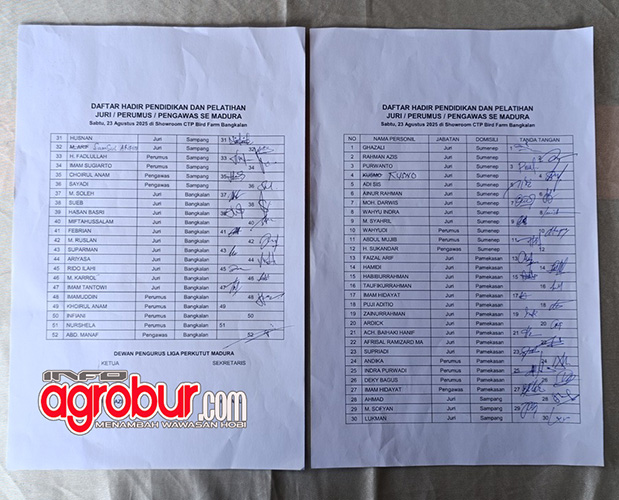 DAFTAR HADIR PENDIDIKAN DAN PELATIHAN
JURI / PERUMUS / PENGAWAS SE MADURA
Sabtu, 23 Agustus 2025 di Showroom CTP Bird Farm Bangkalan
31 HUSNAN Juri Sampang 31
32 M. ARIF Juri Sampang 32
33 H. FADLULLAH Perumus Sampang 33
34 IMAM SUGIARTO Perumus Sampang 34
35 CHOIRUL ANAM Pengawas Sampang 35
36 SAYADI Pengawas Sampang 36
37 M. SOLEH Juri Bangkalan 37
38 SUEB Juri Bangkalan 38
39 HASAN BASRI Juri Bangkalan 39
40 MIFTAHUSSALAM Juri Bangkalan 40
41 FEBRIAN Juri Bangkalan 41
42 M. RUSLAN Juri Bangkalan 42
43 SUPARMAN Juri Bangkalan 43
44 ARIYASA Juri Bangkalan 44
45 RIDO ILAHI Juri Bangkalan 45
46 M. KARROL Juri Bangkalan 46
47 IMAM TANTOWI Juri Bangkalan 47
48 IMAMUDDIN Perumus Bangkalan 48
49 KHOIRUL ANAM Perumus Bangkalan 49
50 INFIANI Perumus Bangkalan 50
51 NURSHELA Perumus Bangkalan 51
52 ABD. MANAF Pengawas Bangkalan 52
DEWAN PENGURUS LIGA PERKUTUT MADURA
KETUA SEKRETARIS
INFO
agrobur.com
MENAMBAH WAWASAN HOBI
DAFTAR HADIR PENDIDIKAN DAN PELATIHAN
JURI / PERUMUS / PENGAWAS SE MADURA
Sabtu, 23 Agustus 2025 di Showroom CTP Bird Farm Bangkalan
NO NAMA PERSONIL JABATAN DOMISILI TANDA TANGAN
1 GHAZALI Juri Sumenep 1
2 RAHMAN AZIS Juri Sumenep 2
3 PURWANTO Juri Sumenep 3
4 KUSMO KUSNO Juri Sumenep 4
5 ADI SIS Juri Sumenep 5
6 AINUR RAHMAN Juri Sumenep 6
7 MOH. DARWIS Juri Sumenep 7
8 WAHYU INDRA Juri Sumenep 8
9 M. SYAHRIL Juri Sumenep 9
10 WAHYUDI Perumus Sumenep 10
11 ABDUL MUJIB Perumus Sumenep 11
12 H. SUKANDAR Pengawas Sumenep 12
13 FAIZAL ARIF Juri Pamekasan 13
14 HAMIDI Juri Pamekasan 14
15 HABIBURRAHMAN Juri Pamekasan 15
16 TAUFIKURRAHMAN Juri Pamekasan 16
17 IMAM HIDAYAT Juri Pamekasan 17
18 PUJI ADITIO Juri Pamekasan 18
19 ZAINURRAHMAN Juri Pamekasan 19
20 ARDICK Juri Pamekasan 20
21 ACH. BAIHAKI HANIF Juri Pamekasan 21
22 AFRISAL RAMIZARD MA Juri Pamekasan 22
23 SUPRIADI Juri Pamekasan 23
24 ANDIKA Perumus Pamekasan 24
25 INDRA PURWADI Perumus Pamekasan 25
26 DEKY BAGUS Perumus Pamekasan 26
27 IMAM HIDAYAT Pengawas Pamekasan 27
28 AHMAD Juri Sampang 28
29 M. SOFYAN Juri Sampang 29
30 LUKMAN Juri Sampang 30